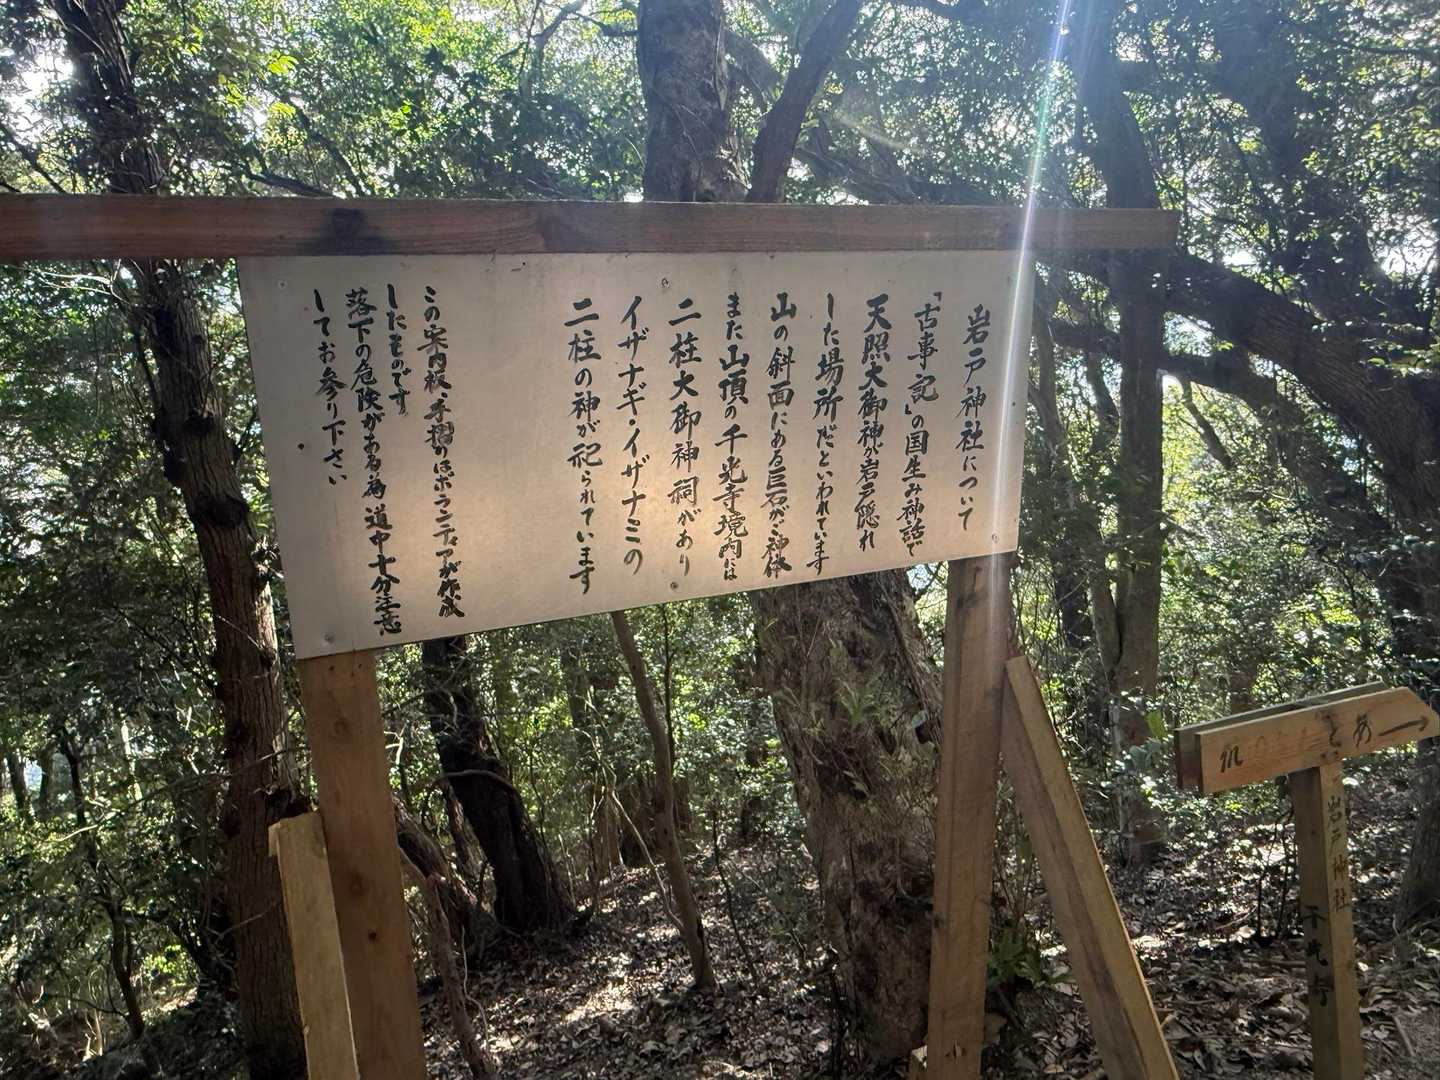 岩戸神社について
「古事記」の国生み神話で
天照大御神が岩戸隠れ
した場所だといわれています
山の斜面にある巨石がご神体
また山頂の千光寺境内には
二柱大御神祠があり
イザナギ・イザナミの
二柱の神が祀られています
この案内板、手摺りはボランティアが作成
したものです
落下の危険がある為道中十分注意
してお参り下さい
岩戸神社
千光寺